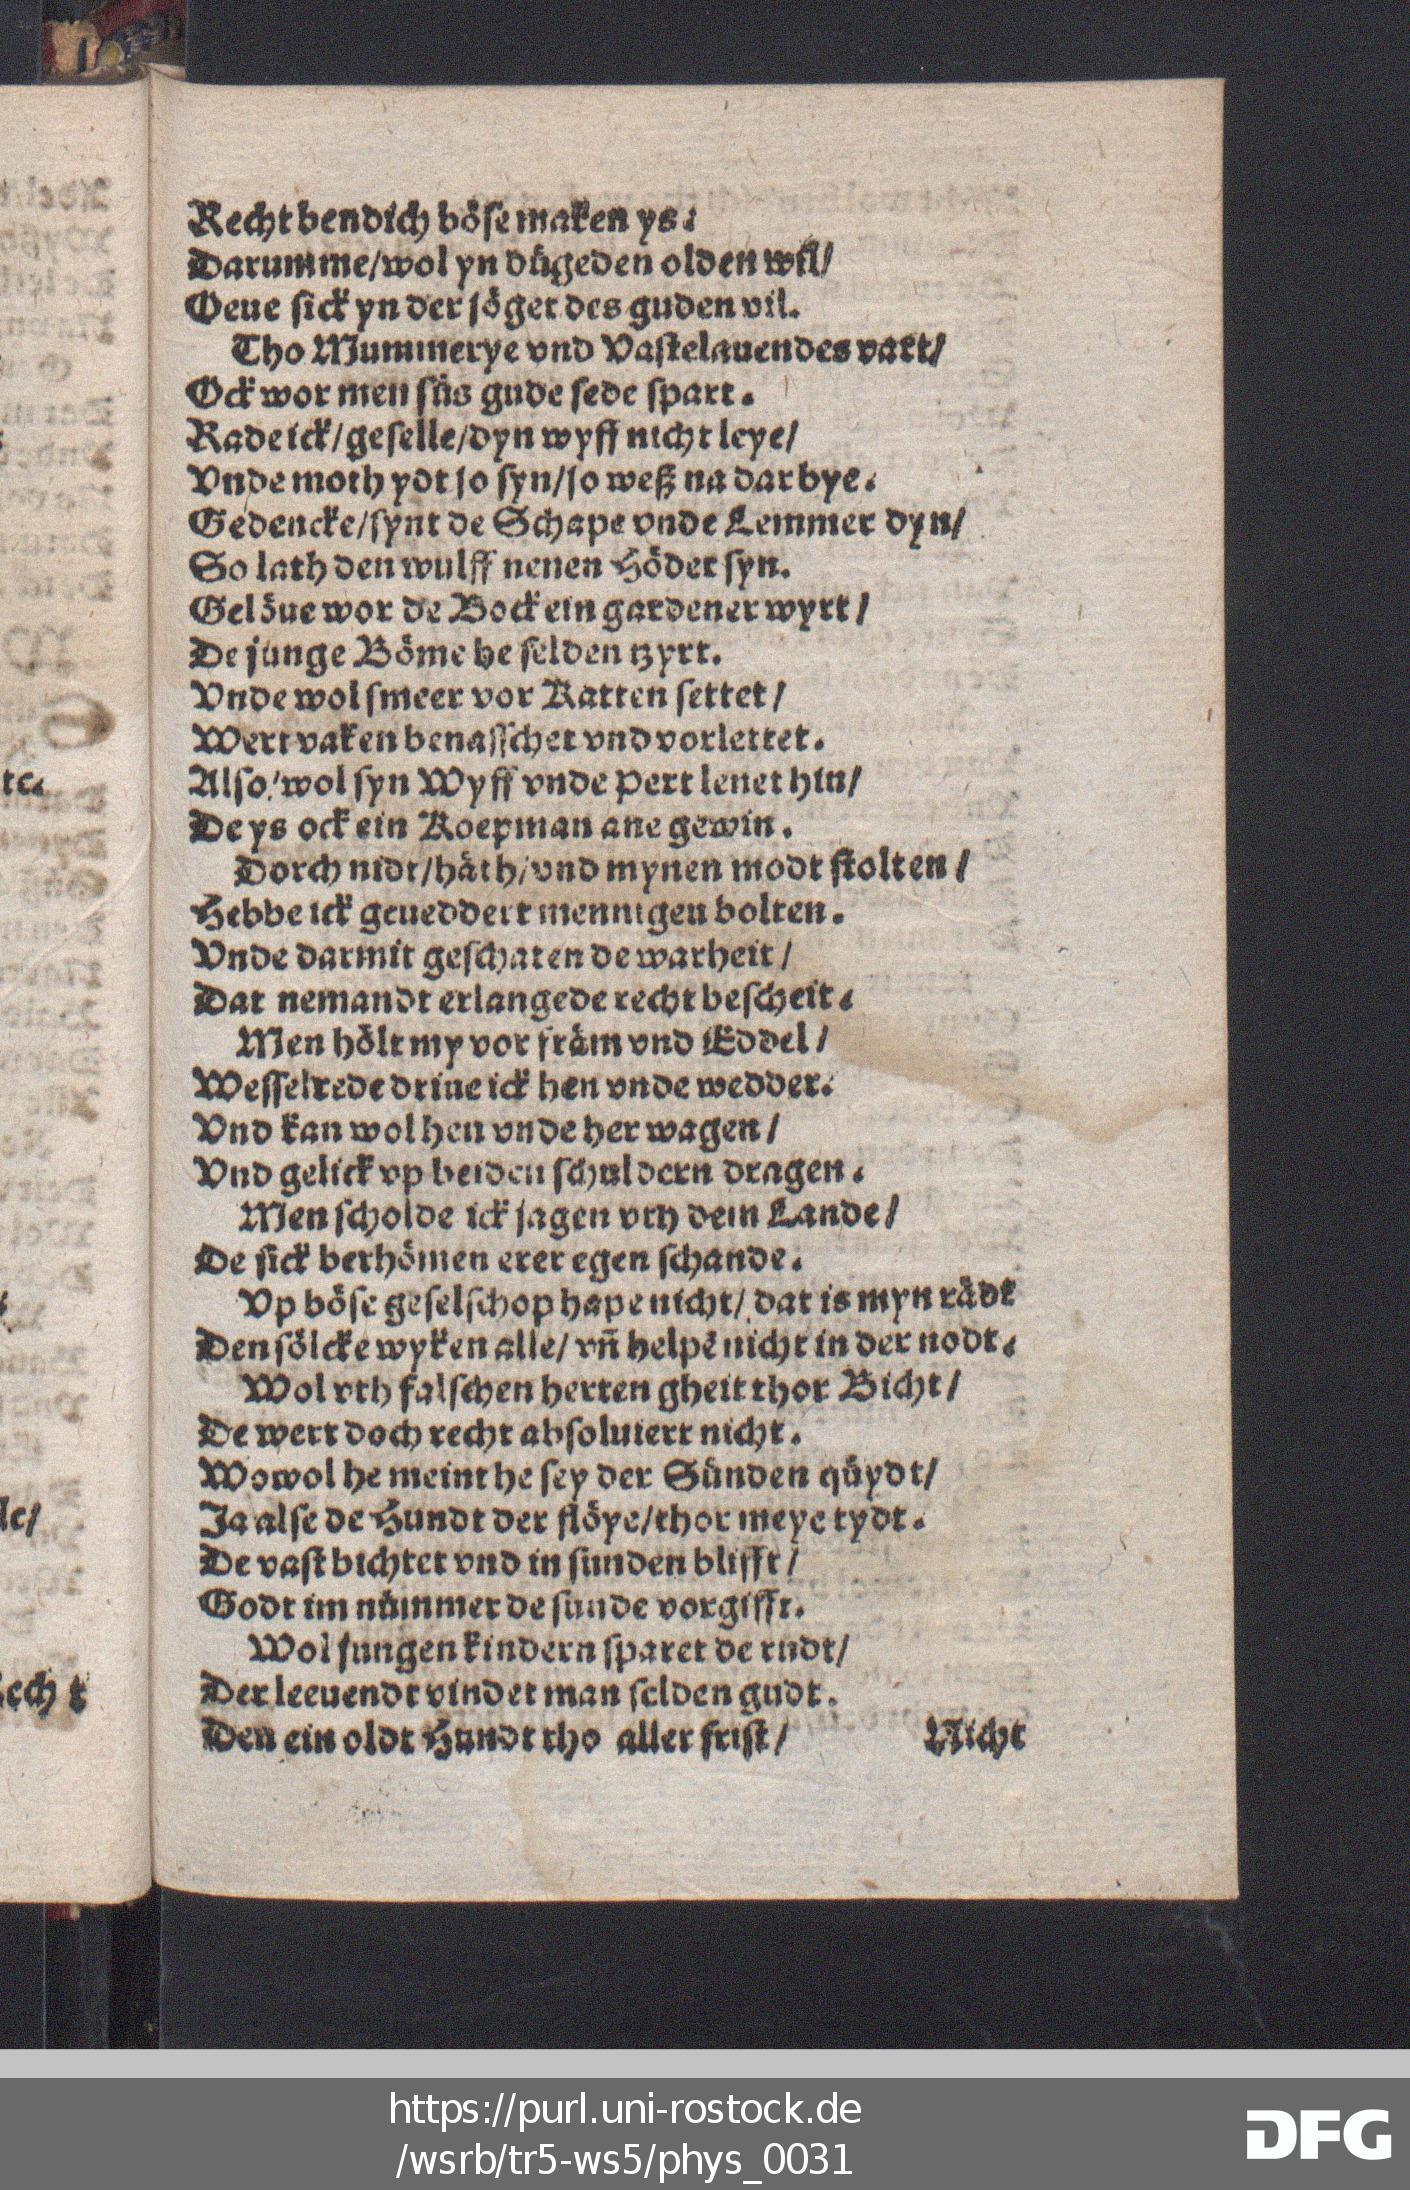 Recht bendich böse maken ys.
Darumme/wol yn dügeden olden wil/
Oeue sick yn der jöget des guden vil.
Tho Mummerye vnd Vastelauendes vart/
Ock wor men süs gude sede spart.
Rade ick/geselle/dyn wyff nicht leye/
Vnde moth ydt jo syn/so weß na dar bye.
Gedencke/synt de Schape vnde Lemmer dyn/
So lath den wulff nenen Höder syn.
Gelöue wor de Bock ein gardener wyrt/
De junge Böme he selden tzyrt.
Vnde wol smeer vor Katten settet/
Wert vaken benasschet vnd vorlettet.
Also/wol syn Wyff vnde Pert lenet hin/
De ys ock ein Koepman ane gewin.
Dorch nidt/häth/vnd mynen modt stolten/
Hebbe ick geueddert mennigen bolten.
Vnde darmit geschaten de warheit/
Dat nemandt erlangede recht bescheit.
Men hölt my vor främ vnd Eddel/
Wesselrede driue ick hen vnde wedder.
Vnd kan wol hen vnde her wagen/
Vnd gelick vp beiden schuldern dragen.
Men scholde ick jagen vth dem Lande/
De sick berhömen erer egen schande.
Vp böse geselschop hape nicht/dat is myn rädt
Den sölcke wyken alle/vñ helpē nicht in der nodt.
Wol vth falschen herten gheit thor Bicht/
De wert doch recht absoluiert nicht.
Wowol he meint he sey der Sünden qüydt/
Ja alse de Hundt der flöye/thor meye tydt.
De vast bichtet vnd in sunden blifft/
Godt im nümmer de sunde vorgifft.
Wol jungen kindern sparet de rudt/
Der leeuendt vindet man selden gudt.
Den ein oldt Hundt tho aller frist/
Nicht
te.
le/
Recht
https://purl.uni-rostock.de
/wsrb/tr5-ws5/phys_0031
DFG